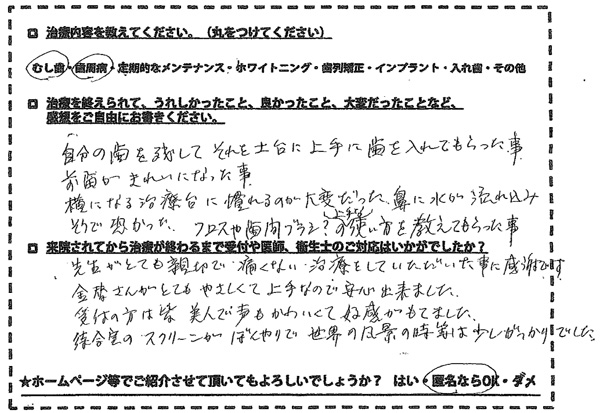 □ 治療内容を教えてください。（丸をつけてください）
むし歯・歯周病・定期的なメンテナンス・ホワイトニング・歯列矯正・インプラント・入れ歯・その他
□ 治療を終えられて、うれしかったこと、良かったこと、大変だったことなど、
感想をご自由にお書きください。
自分の歯を残して それを土台に上手に歯を入れてもらった事
前歯がきれいになった事
横になる治療台に慣れるのが大変だった 鼻に水が流れ込み
そうで恐かった フロスや歯間ブラシ?の上手な使い方を教えてもらった事
□ 来院されてから治療が終わるまで受付や医師、衛生士のご対応はいかがでしたか?
先生がとても親切で 痛くない 治療をしていただいた事に感謝です
さんがとても やさしくて上手なので安心出来ました。
受付の方は皆 美人で声もかわいくて 好感がもてました。
待合室の スクリーンが ぼんやりで 世界の風景の時等は少しがっかりでした。
★ホームページ等でご紹介させて頂いてもよろしいでしょうか？ はい・匿名ならOK・ダメ